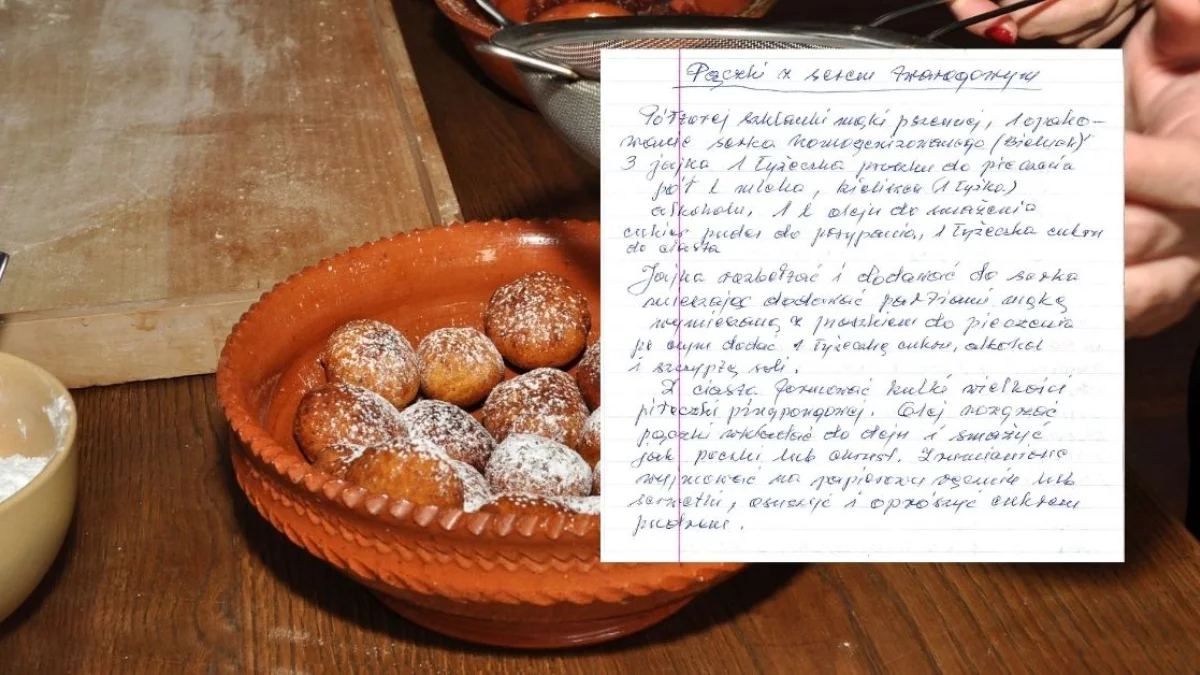 Pączki z serem twarogowym
Półtorej szklanki mąki pszennej, 1 opako-
wanie serka homogenizowanego (Bieluch)
3 jajka 1 łyżeczka proszku do pieczenia
pół l mleka, kieliszek (1 łyżka)
alkoholu, 1 l oleju do smażenia
cukier puder do posypania, 1 łyżeczka cukru
do ciasta
Jajka rozbełtać i dodawać do serka
mieszając dodawać partiami mąkę
wymieszaną z proszkiem do pieczenia
po czym dodać 1 łyżeczkę cukru, alkohol
i szczyptę soli.
Z ciasta formować kulki wielkości
piłeczki pingpongowej. Olej rozgrzać
pączki wkładać do oleju i smażyć
jak pączki lub chrust. Zrumienione
wyjmować na papierowy ręcznik lub
serwetki, osuszyć i oprószyć cukrem
pudrem.